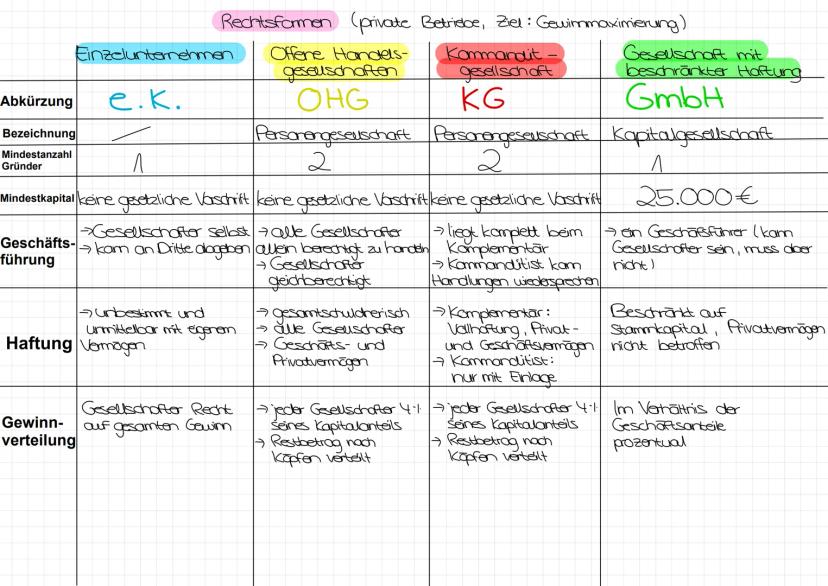 Rechtsformen (private Betriebe, Ziel: Gewinnmaximierung)
Einzelunternehmen
Offene Handels-
gesellschaften
Kommandit-
gesellschaft
Gesellschaft mit
beschränkter Haftung
Abkürzung
e.K.
OHG
KG
GmbH
Bezeichnung
Personengesellschaft
Personengesellschaft
Kapitalgesellschaft
Mindestanzahl
Gründer
1
2
2
1
Mindestkapital
keine gesetzliche Vorschrift
keine gesetzliche Vorschrift
keine gesetzliche Vorschrift
25.000€
Geschäfts-
führung
→ Gesellschafter selbst
→ kann an Dritte abgeben
→ alle Gesellschafter
allein berechtigt zu handeln
→ Gesellschafter
gleichberechtigt
→ liegt komplett beim
Komplementär
→ Kommanditist kann
Handlungen wiedersprechen
→ ein Geschäftsführer (kann
Gesellschafter sein, muss aber
nicht)
Haftung
→ unbestimmt und
unmittelbar mit eigenem
Vermögen
→ gesamtschuldnerisch
→ alle Gesellschafter
→ Geschäfts- und
Privatvermögen
→ Komplementär:
Vollhaftung, Privat-
und Geschäftsvermögen
→ Kommanditist:
nur mit Einlage
Beschränkt auf
Stammkapital, Privatvermögen
nicht betroffen
Gewinn-
verteilung
Gesellschafter Recht
auf gesamten Gewinn
→ jeder Gesellschafter 4%
seines Kapitalanteils
→ Restbetrag nach
Köpfen verteilt
→ jeder Gesellschafter 4%
seines Kapitalanteils
→ Restbetrag nach
Köpfen verteilt
Im Verhältnis der
Geschäftsanteile
prozentual